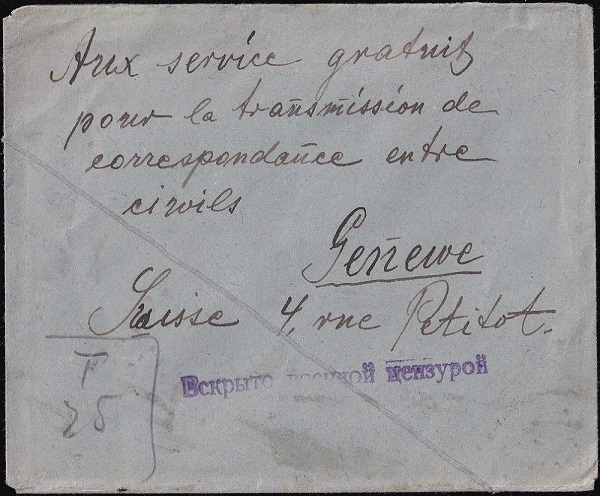 Aux service gratuit
pour la transmission de
correspondance entre
civils
Genewe
Suisse 4, rue Petitot.
T
25
Вскрыто военной цензурой